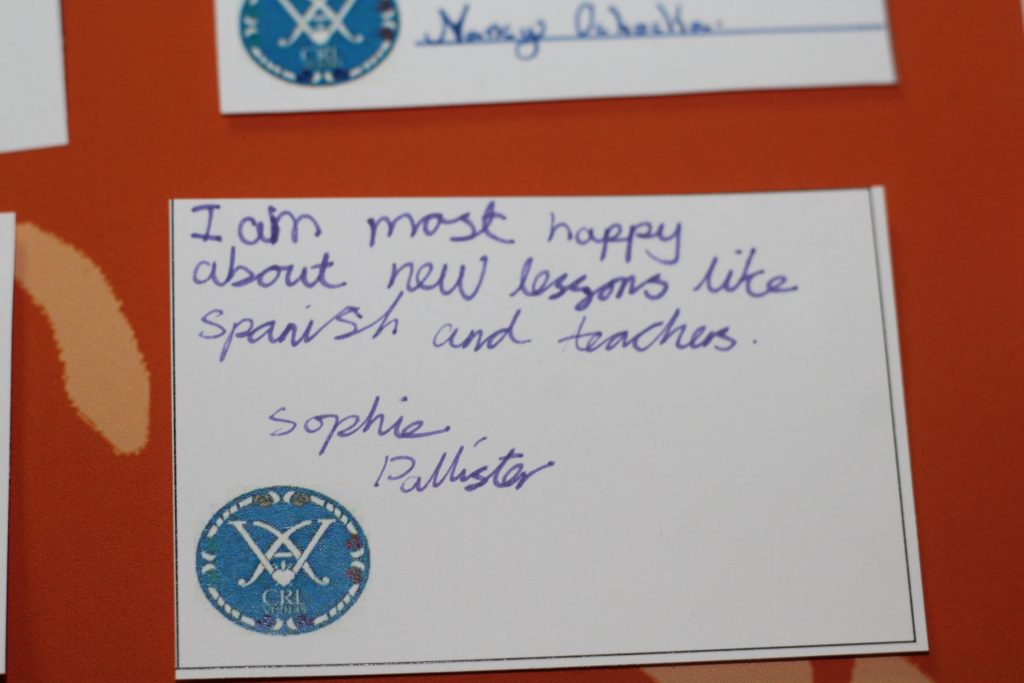 CRL
Nancy
I am most happy
about new lessons like
Spanish and teachers.
Sophie
Pallister
CRL